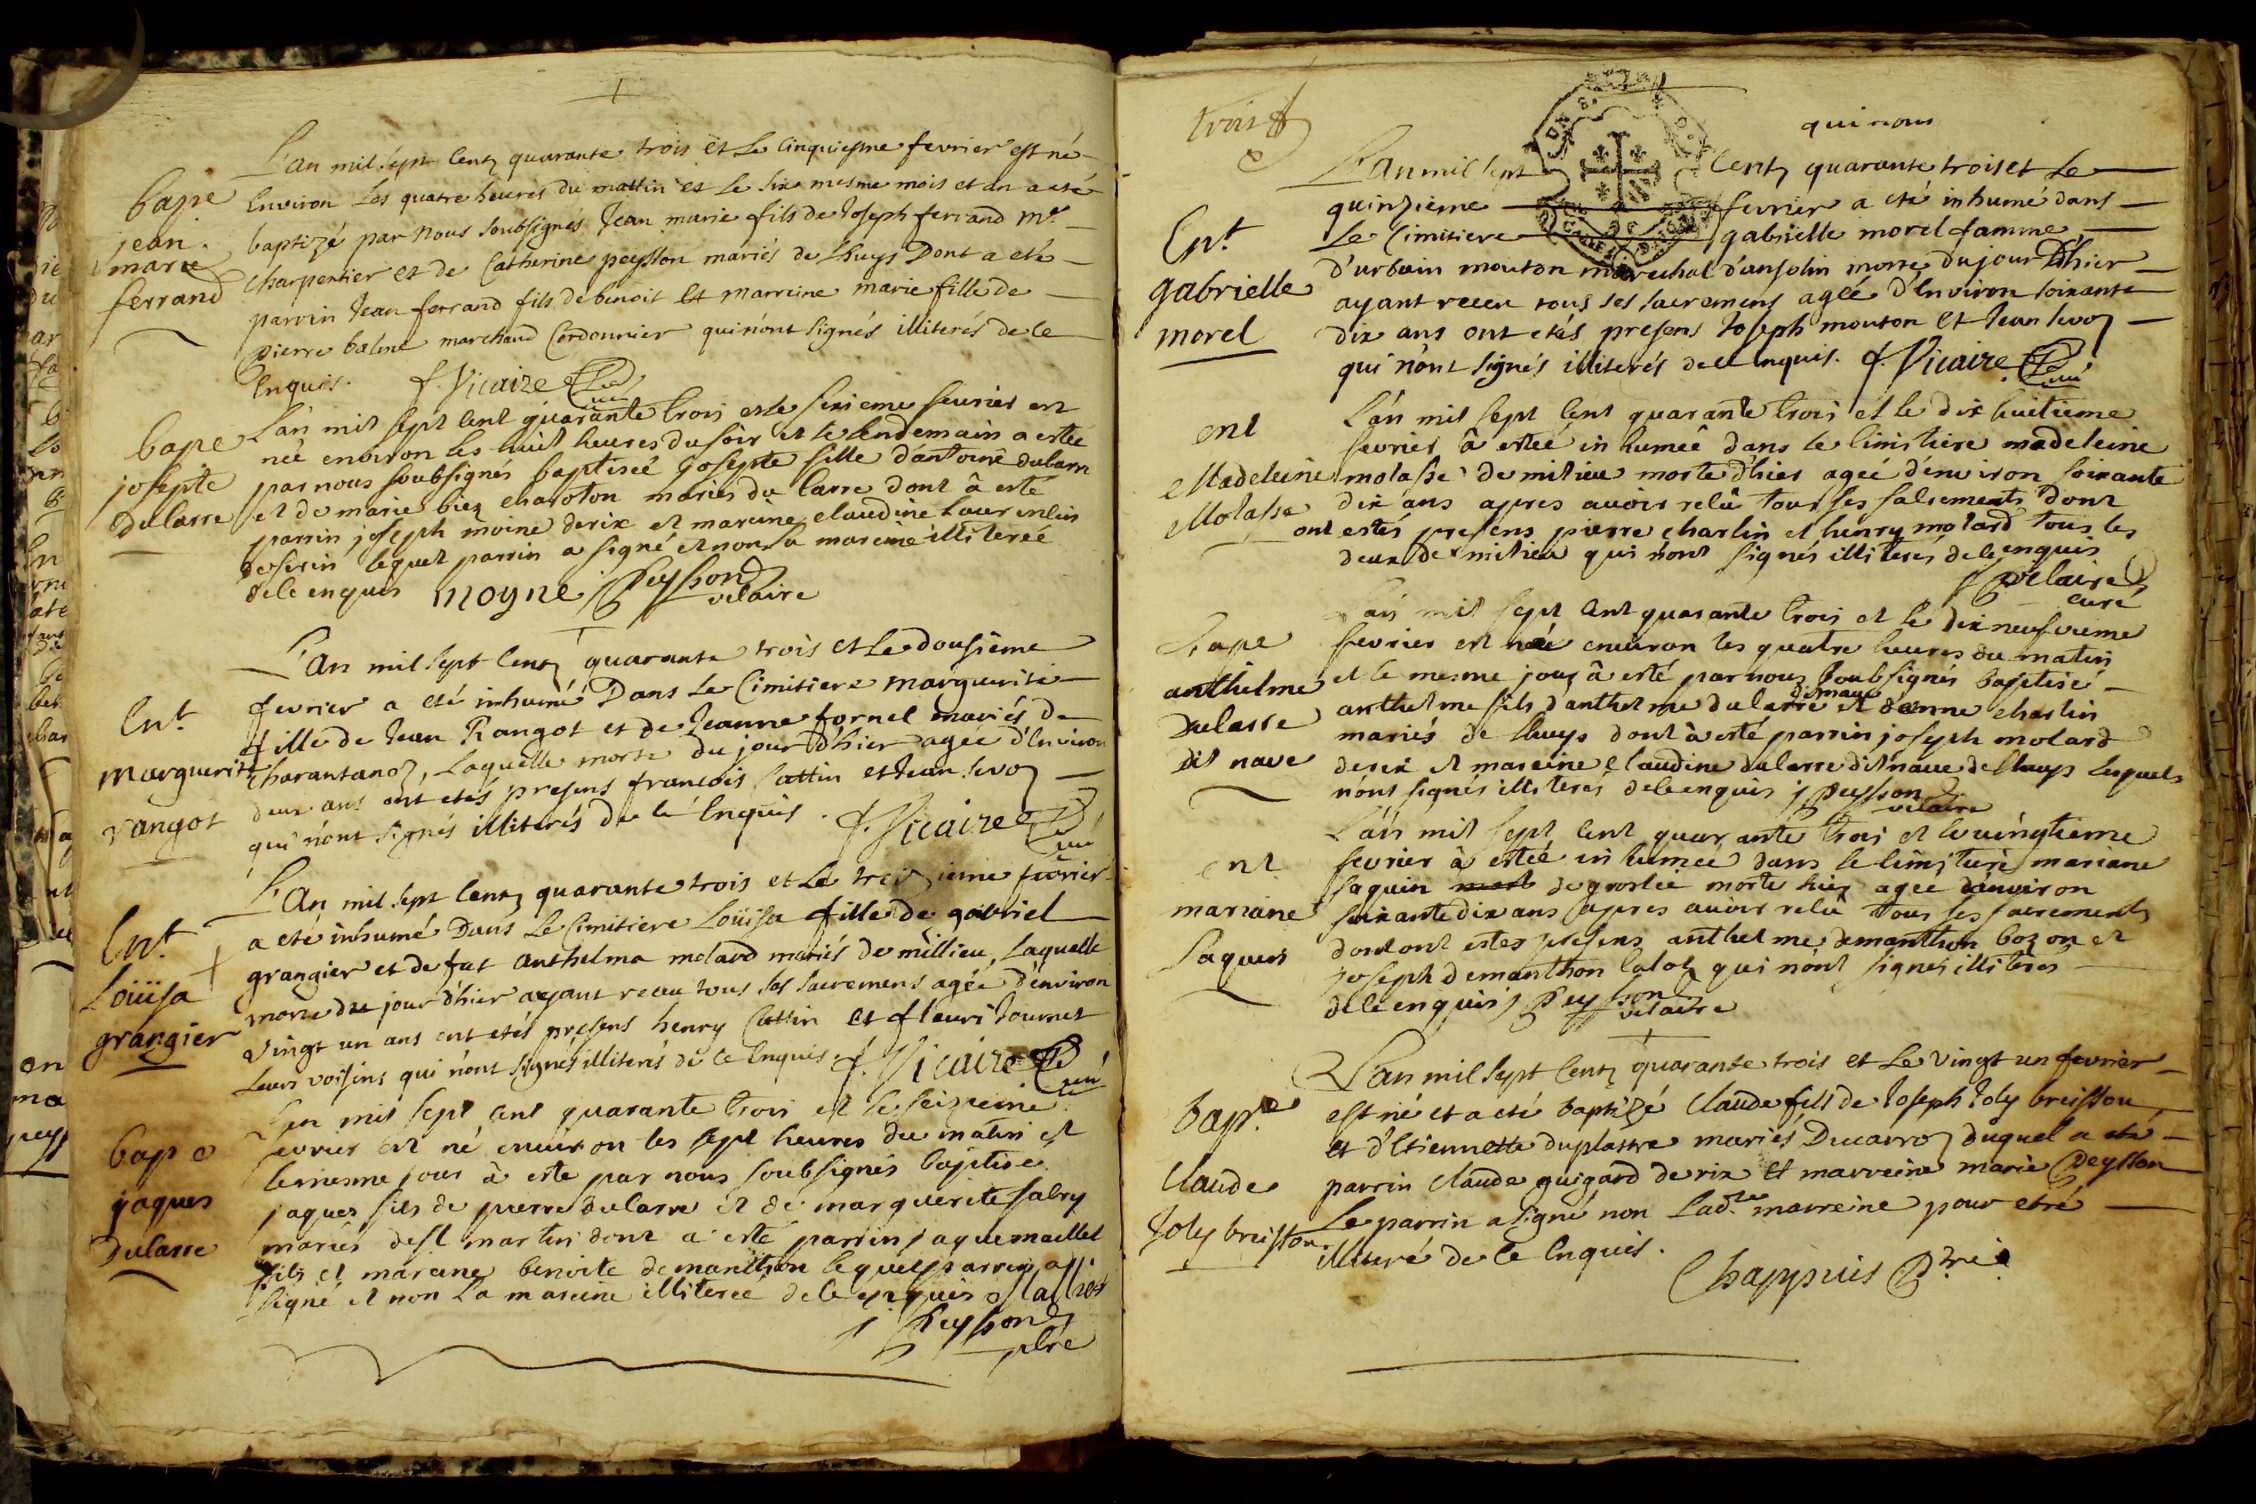 bape
jean
marie
ferrand
L'an mil sept centz quarante trois et Le Cinquiesme fevrier est né
Environ Les quatre heures du mattin et le six mesme mois et an a eté
baptizé par nous soubsignés Jean marie fils de Joseph ferrand Me
charpentier et de Catherine peysson mariés de Lhuys Dont a eté
parrin Jean ferrand fils de benoit et marreine marie fille de
pierre baléne marchand Cordonnier qui n'ont signés illiterés de ce
Enquis. f. Vicaire Curé
bape
josepte
Dulasse
L'an mil sept cent quarante trois et le sixieme feurier est
neé environ les huit heures du soir et le lendemain a esteé
par nous soubsignés baptiseé josepte fille d'antoine dularre
et de marie bien charoton mariés du larre dont à esté
parrin joseph moine de rix et mareine claudine Laurencin
deserin lequel parrin a signé et non la mareine illitereé
de ce enquis moyne J Peysson vicaire
Ent
Marguerite
rangot
L'an mil sept centz quarante trois et le dousiême
fevrier a eté inhumé Dans Le Cimitiere marguerite
fille de Jean Rangot et de Jeanne fornel mariés de
Charantanoz, Laquelle morte du jour d'hier agée d'Environ
deux ans ont etés presens francois Cattin et Jean sevoz
qui n'ont signés illiterés de cé Enquis. f. Vicaire Curé
Ent
Loüisa
grangier
L'An mil sept centz quarante trois et Le treizieme fevrier
a eté inhumé Dans Le Cimitiere Loüisa fille de gabriel
grangier et de fut anthelma molard mariés de millieu, Laquelle
morte du jour d'hier ayant receu tous ses sacremens agée d'environ
Vingt un ans ont etés presens henry Cattin et fleuri tournet
Leurs voisins qui n'ont signés illiterés de ce Enquis. f. Vicaire Curé
bape
jaques
Dulasse
L'an mil sept cent quarante trois et le seizieme
fevrier est né environ les sept heures du matin et
le mesme jour à esté par nous soubsignés baptise
jaques fils de pierre dularre et de marguerite fabry
mariés de st martin dont a esté parrin jaque maillet
fils et mareine benoite demanthon lequel parrin a
signé et non La mareine illitereé de ce enquis Malliet
j Peysson
ptre
trois
qui nous
Ent
gabrielle
morel
L'an mil sept Centz quarante trois et Le
quinzieme fevrier a eté inhumé dans
Le Cimitiere gabrielle morel famme
d'urbain mouton marechal d'ansolin morte du jour d'hier
ayant receu tous ses sacremens ageé d'Environ soixante
dix ans ont etés presens Joseph mouton et Jean sevoz
qui n'ont signés illiterés de ce enquis. f. Vicaire Curé
ent
Madeleine
Molasse
L'an mil sept cent quarante trois et le dix huitieme
fevrier à esteé in humeé dans le cimitiere madeleine
molasse de milieu morte d'hier ageé d'environ soixante
dix ans apres auoir relû tous ses sacrements dont
ont estés presens pierre charlin et henry molard tous les
deux de milieu qui n'ont signés illiterés de ce enquis
Vicaire
curé
bape
anthelme
Dulasse
dit nave
L'an mil sept cent quarante trois et le dix neufvieme
fevrier est né environ les quatre heures du matin
et le mesme jour à esté par nous soubsignés baptisé
dit nave
anthelme fils d'anthelme dularre et d'anne charlin
mariés de Lhuys dont à esté parrin joseph molard
de rix et mareine claudine dularre dit naue de Lhuys lesquels
n'ont signés illiterés de ce enquis j Peysson
vicaire
ent
mariane
saquin
L'an mil sept cent quarante trois et le vingtieme
fevrier à esteé in humeé dans le cimitiere mariane
saquin de groslée morte hier agee d'environ
soixante dix ans apres auoir relû tous ses sacrements
dont ont estes presens anthelme demanthon bozon et
joseph demanthon Calot qui n'ont signés illiterés
de ce enquis j Peysson
vicaire
bape
Claude
Joly breisson
L'an mil sept Centz quarante trois et Le Vingt un fevrier
est né et a eté baptizé Claude fils de Joseph Joly breisson
et d'Etiennette duplastre mariés Ducarroz duquel a eté
parrin Claude guigard de rix et marreine marie Peysson
Le parrin a signé non Lad.te marreine pour etré
illiteré de ce Enquis.
Chappuis Ptre